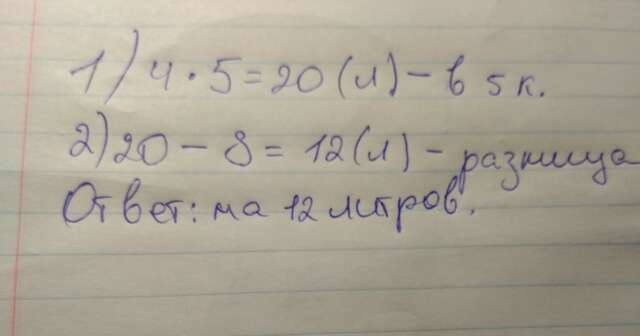 1) 4 · 5 = 20 (л) - в 5 к.
2) 20 - 8 = 12 (л) - разница
Ответ: на 12 литров.